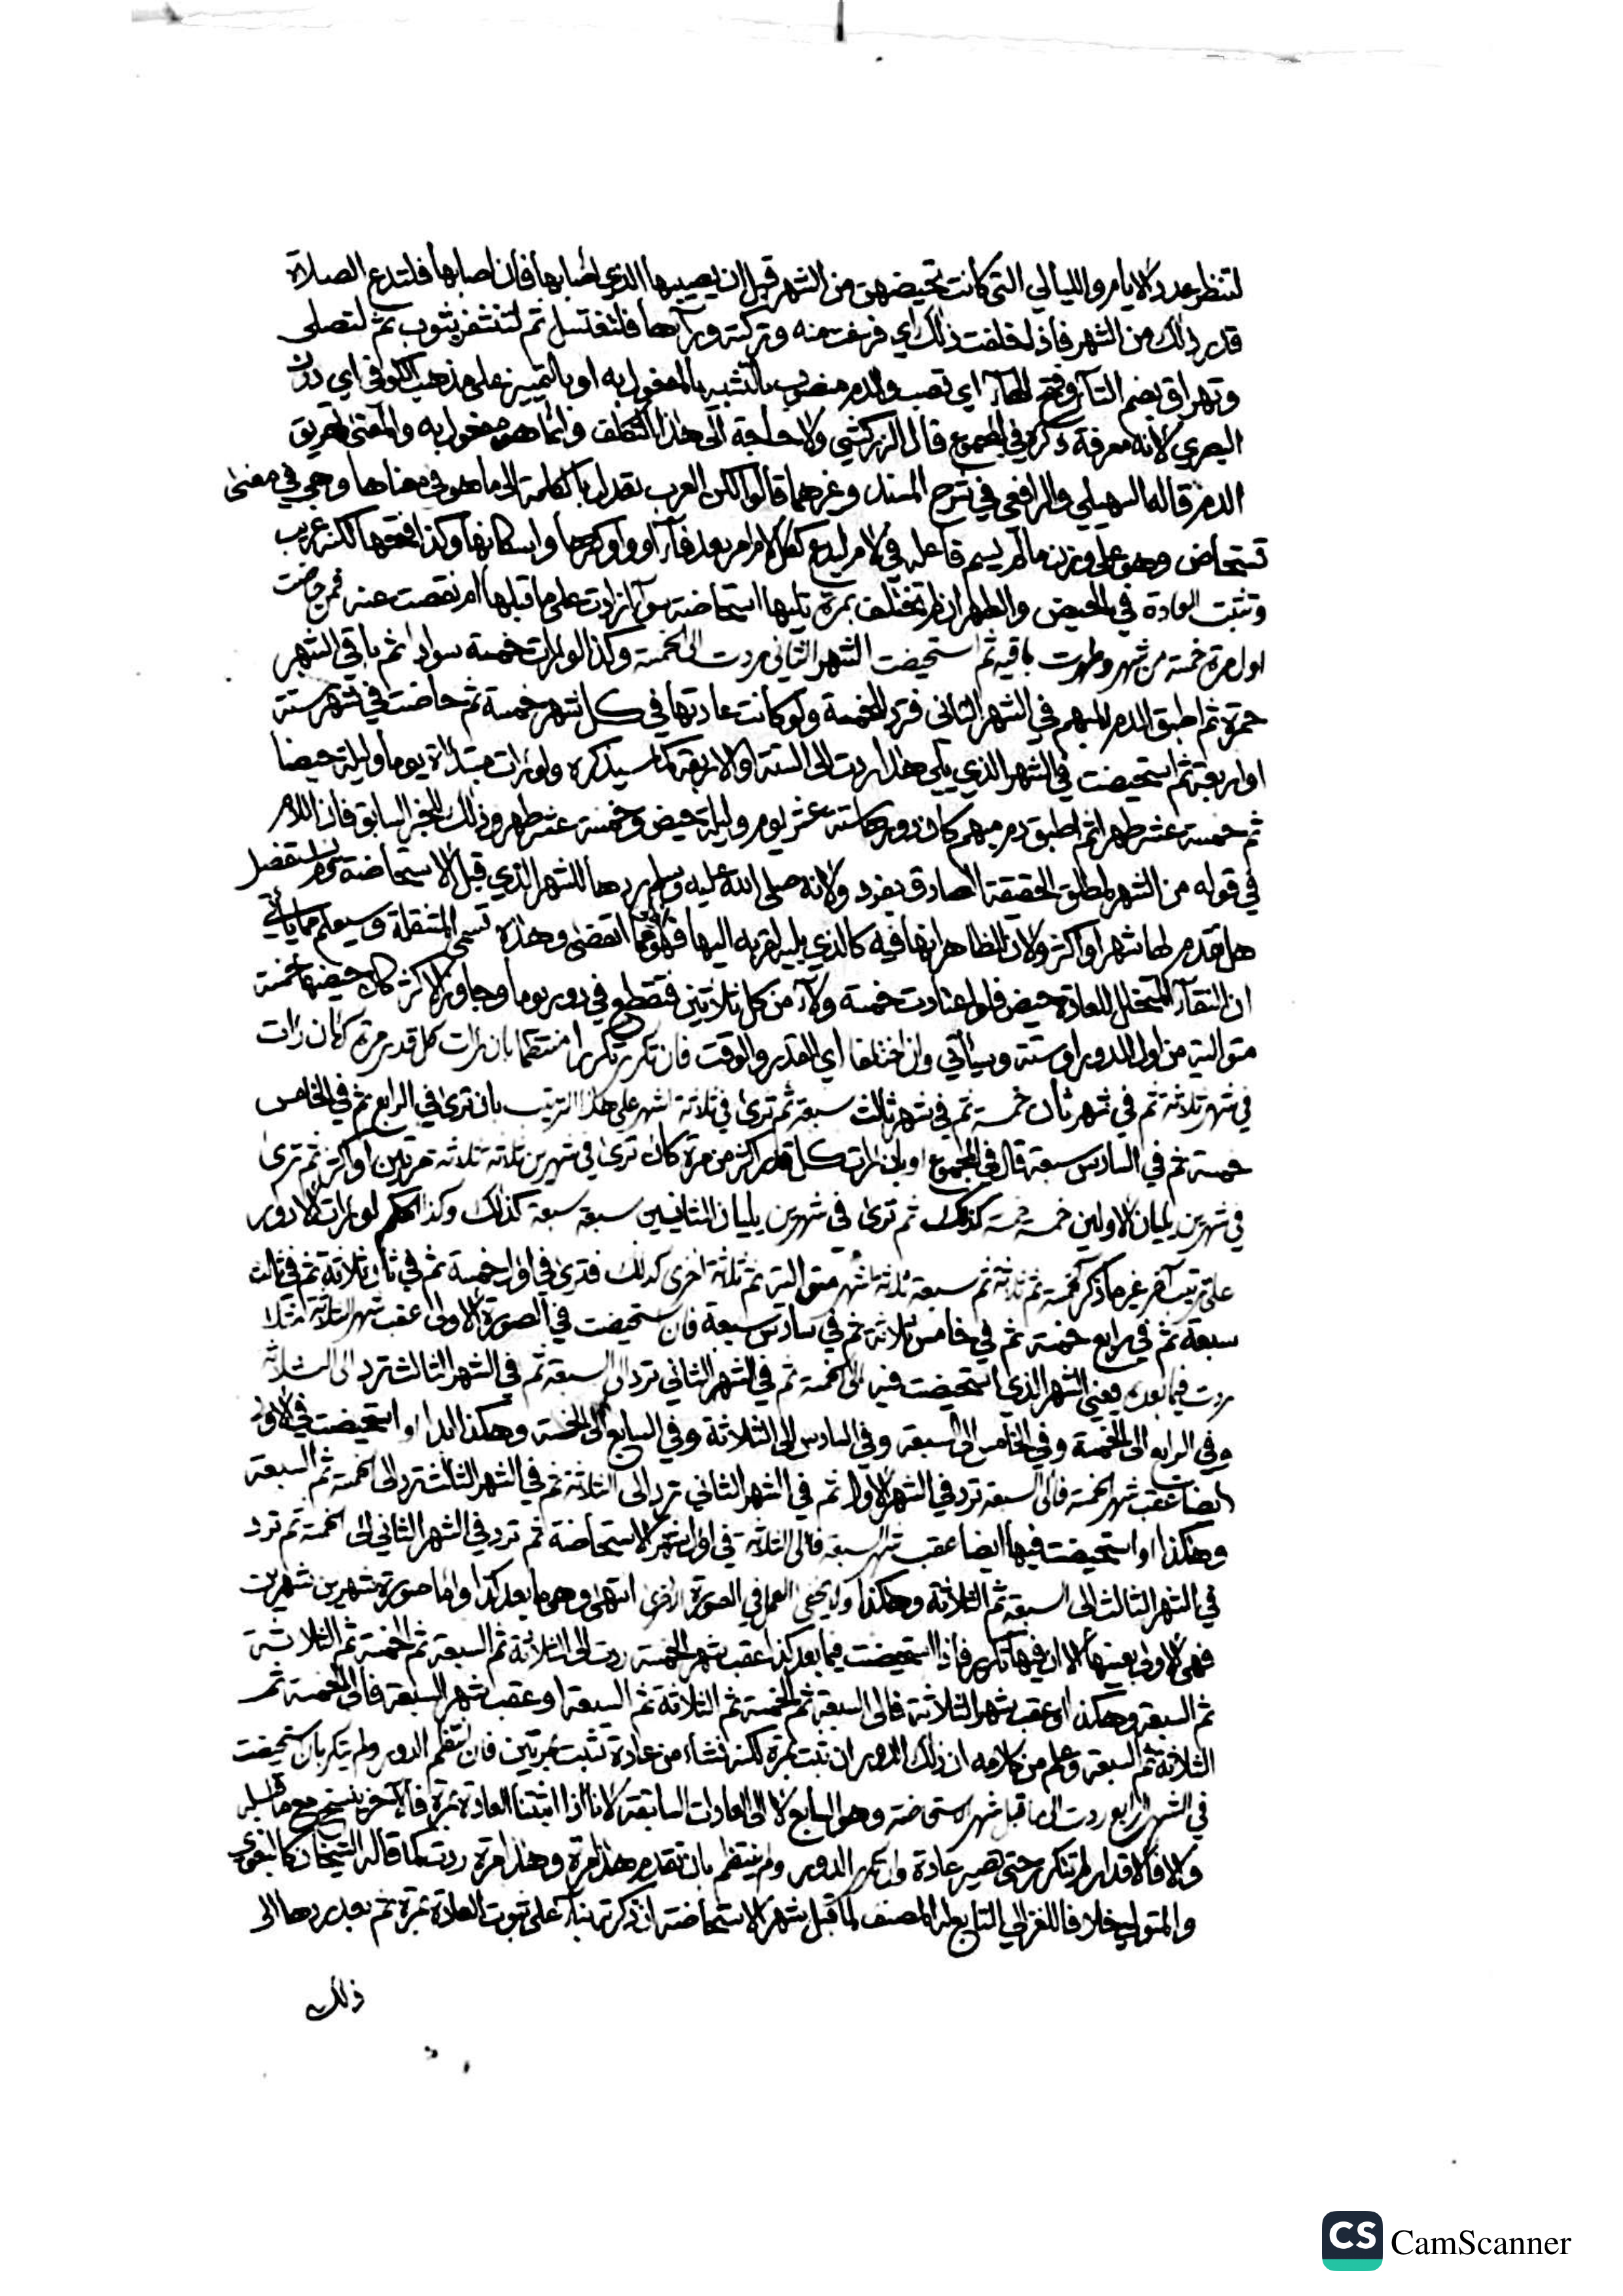 لتنظر عدد الايام والليالي التي كانت تحيضهن من الشهر قبل ان يصيبها الذي اصابها فان اصابها فلتدع الصلاة
قدر ذلك من الشهر فاذا خلفت ذلك اي فرغت منه وتركته ورآها فلتغتسل ثم لتستثفر بثوب ثم لتصلي
وتهراق بضم التآ وفتح الهآ اي تصب والدم منصوب بالتشبيه بالمفعول به او بالتمييز على مذهب الكوفي اي دون
البصري لانه معرفة ذكره في المجموع قال الزركشي ولا حاجة الى هذا التكلف وانما هو مفعول به والمعنى تهريق
الدم قاله السهيلي والرافعي في شرح المسند وغيرهما قالوا لكن العرب تعدل بالكلمة الى ما هو في معناها وهي في معنى
تستحاض وهو على وزن ما لم يسم فاعله في لام لتدع كلام الامر بعد فآء او واو كسرها واسكانها وكذا فتحها لكنه غريب
وتثبت العادة في الحيض والطهر ان لم تختلف بمرة تليها استحاضة سوآ زادت على ما قبلها ام نقصت عنه فمن حاضت
اول مرة خمسة من شهر وطهرت باقيه ثم استحيضت الشهر الثاني ردت الى الخمسة وكذا لو رات خمسة سوادا ثم باقي الشهر
حمرة ثم اطبق الدم المبهم في الشهر الثاني فترد للخمسة ولو كانت عادتها في كل شهر خمسة ثم حاضت في شهر ستة
او اربعة ثم استحيضت في الشهر الذي يلي هذا ردت الى الستة والاربعة كما سيذكره ولو رات مبتداة يوما وليلة حيضا
ثم خمسة عشر طهرا ثم اطبق دم مبهم كان دورها ستة عشر يوم وليلة حيض وخمسة عشر طهر وذلك للخبر السابق فان اللام
في قوله من الشهر لمطلق الحقيقة الصادق بفرد ولانه صلى الله عليه وسلم ردها للشهر الذي قبل الاستحاضة ولم يستفصل
هل تقدم لها شهر او اكثر ولان الظاهر انها فيه كالذي يليه لقربه اليها فهو اولى مما انقضى وهذه تسمى المتنقلة وسيعلم مما ياتي
ان النقآء المتخلل للعادة حيض فلو اعتادت خمسة ولآء من كل ثلاثين فتقطع في دور يوما وجاوز الاكثر كان حيضها خمسة
متوالية من اول الدور او ستة وسياتي وان اختلفا اي القدر والوقت فان تكرر تكررا منتظما بان رات كل قدر مرة كان رات
في شهر ثلاثة ثم في شهر ثان خمسة ثم في شهر ثالث سبعة ثم ترى في ثلاثة اشهر على هذا الترتيب بان ترى في الرابع ثم في الخامس
خمسة ثم في السادس سبعة قال في المجموع او بان رات كل قدر اكثر من مرة كان ترى في شهرين ثلاثة ثلاثة مرتين او اكثر ثم ترى
في شهرين يليان الاولين خمسة خمسة كذلك ثم ترى في شهرين يليان الثانيين سبعة سبعة كذلك وكذا الحكم لو رات الادوار
على ترتيب آخر غير ما ذكر كخمسة ثم ثلاثة ثم سبعة ثلاثة اشهر متوالية ثم ثلاثة اخرى كذلك فترى في اول خمسة ثم في ثان ثلاثة ثم في ثالث
سبعة ثم في رابع خمسة ثم في خامس ثلاثة ثم في سادس سبعة فان استحيضت في الصورة الاولى عقب شهر الثلاثة مثلا
ردت فيما بعده يعني الشهر الذي استحيضت فيه الى الخمسة ثم في الشهر الثاني ترد الى السبعة ثم في الشهر الثالث ترد الى الثلاثة
وفي الرابع الى الخمسة وفي الخامس الى السبعة وفي السادس الى الثلاثة وفي السابع الى الخمسة وهكذا ابدا او استحيضت في الاولى
ايضا عقب شهر الخمسة فالى السبعة ترد في الشهر الاول ثم في الشهر الثاني ترد الى الثلاثة ثم في الشهر الثالث ترد الى الخمسة ثم السبعة
وهكذا او استحيضت فيها ايضا عقب شهر السبعة فالى الثلاثة في اول شهر الاستحاضة ثم ترد في الشهر الثاني الى الخمسة ثم ترد
في الشهر الثالث الى السبعة ثم الثلاثة وهكذا ولا يخفى العمل في الصورة الاخرى انتهى وهو ما بعد كذا واما صورة شهرين شهرين
فهي الاولى بعينها الا ان فيها تكرير فاذا استحيضت فيما بعد كذا عقب شهر الخمسة ردت الى الثلاثة ثم السبعة ثم الخمسة ثم الثلاثة
ثم السبعة وهكذا او عقب شهر الثلاثة فالى السبعة ثم الخمسة ثم الثلاثة ثم السبعة او عقب شهر السبعة فالى الخمسة ثم
الثلاثة ثم السبعة وعلم من كلامه ان ذلك الدوران ثبت بمرة لكنه انتشاء من عادة تثبت بمرتين فان انتظم الدور ولم يتكرر بان استحيضت
في الشهر الرابع ردت الى ما قبل شهر الاستحاضة وهو السابع لا الى العادات السابقة لانا اذا اثبتنا العادة بمرة فالآخر ينسخ مع ما قبله
والا فالاقدار لم تتكرر حتى تصير عادة وان تكرر الدور ولم ينتظم بان تقدم هذا مرة وهذا مرة ردت كما قاله الشيخان كالبغوي
والمتولي خلافا للغزالي التابع له المصنف لما قبل شهر الاستحاضة ان ذكرته بنآء على ثبوت العادة بمرة ثم بعد ردها الى
ذلك
CS CamScanner